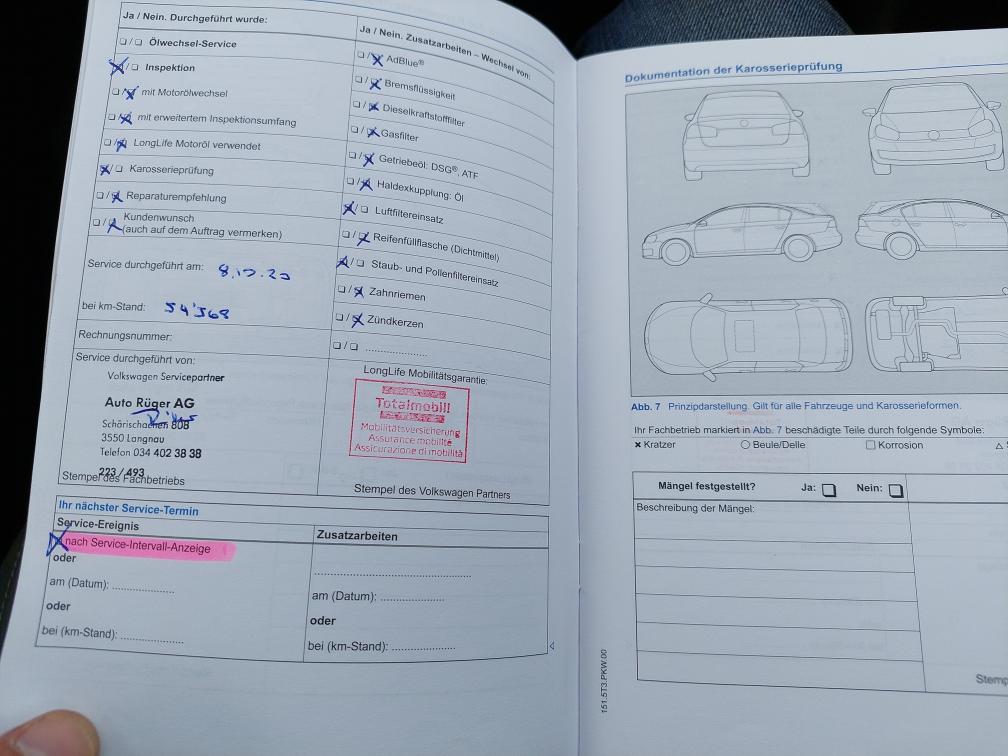 Ja / Nein. Durchgeführt wurde:
❏/❏ Ölwechsel-Service
☒/❏ Inspektion
❏/☒ mit Motorölwechsel
❏/☒ mit erweitertem Inspektionsumfang
❏/☒ LongLife Motoröl verwendet
☒/❏ Karosserieprüfung
❏/☒ Reparaturempfehlung
❏/☒ Kundenwunsch
(auch auf dem Auftrag vermerken)
Service durchgeführt am:
bei km-Stand: 54'568
Rechnungsnummer:
Service durchgeführt von:
Volkswagen Servicepartner
Auto Rüger AG
Schärischachen 808
3550 Langnau
Telefon 034 402 38 38
223 / 493
Stempel des Fachbetriebs
Ja / Nein. Zusatzarbeiten – Wechsel von:
❏/☒ AdBlue®
❏/☒ Bremsflüssigkeit
❏/☒ Dieselkraftstofffilter
❏/☒ Gasfilter
❏/☒ Getriebeöl: DSG®, ATF
❏/☒ Haldexkupplung: Öl
☒/❏ Luftfiltereinsatz
❏/☒ Reifenfüllflasche (Dichtmittel)
☒/❏ Staub- und Pollenfiltereinsatz
❏/☒ Zahnriemen
❏/☒ Zündkerzen
❏/❏ ....................
LongLife Mobilitätsgarantie:
Totalmobil!
Mobilitätsversicherung
Assurance mobilité
Assicurazione di mobilità
Stempel des Volkswagen Partners
Ihr nächster Service-Termin
Service-Ereignis
☒ nach Service-Intervall-Anzeige
oder
am (Datum): ....................
oder
bei (km-Stand): ....................
Zusatzarbeiten
..................................................
am (Datum): ....................
oder
bei (km-Stand): ....................
Dokumentation der Karosserieprüfung
Abb. 7 Prinzipdarstellung. Gilt für alle Fahrzeuge und Karosserieformen.
Ihr Fachbetrieb markiert in Abb. 7 beschädigte Teile durch folgende Symbole:
✖ Kratzer ○ Beule/Delle ☐ Korrosion △
Mängel festgestellt? Ja: ❏ Nein: ❏
Beschreibung der Mängel:
Stemp
151.5T3.PKW.00